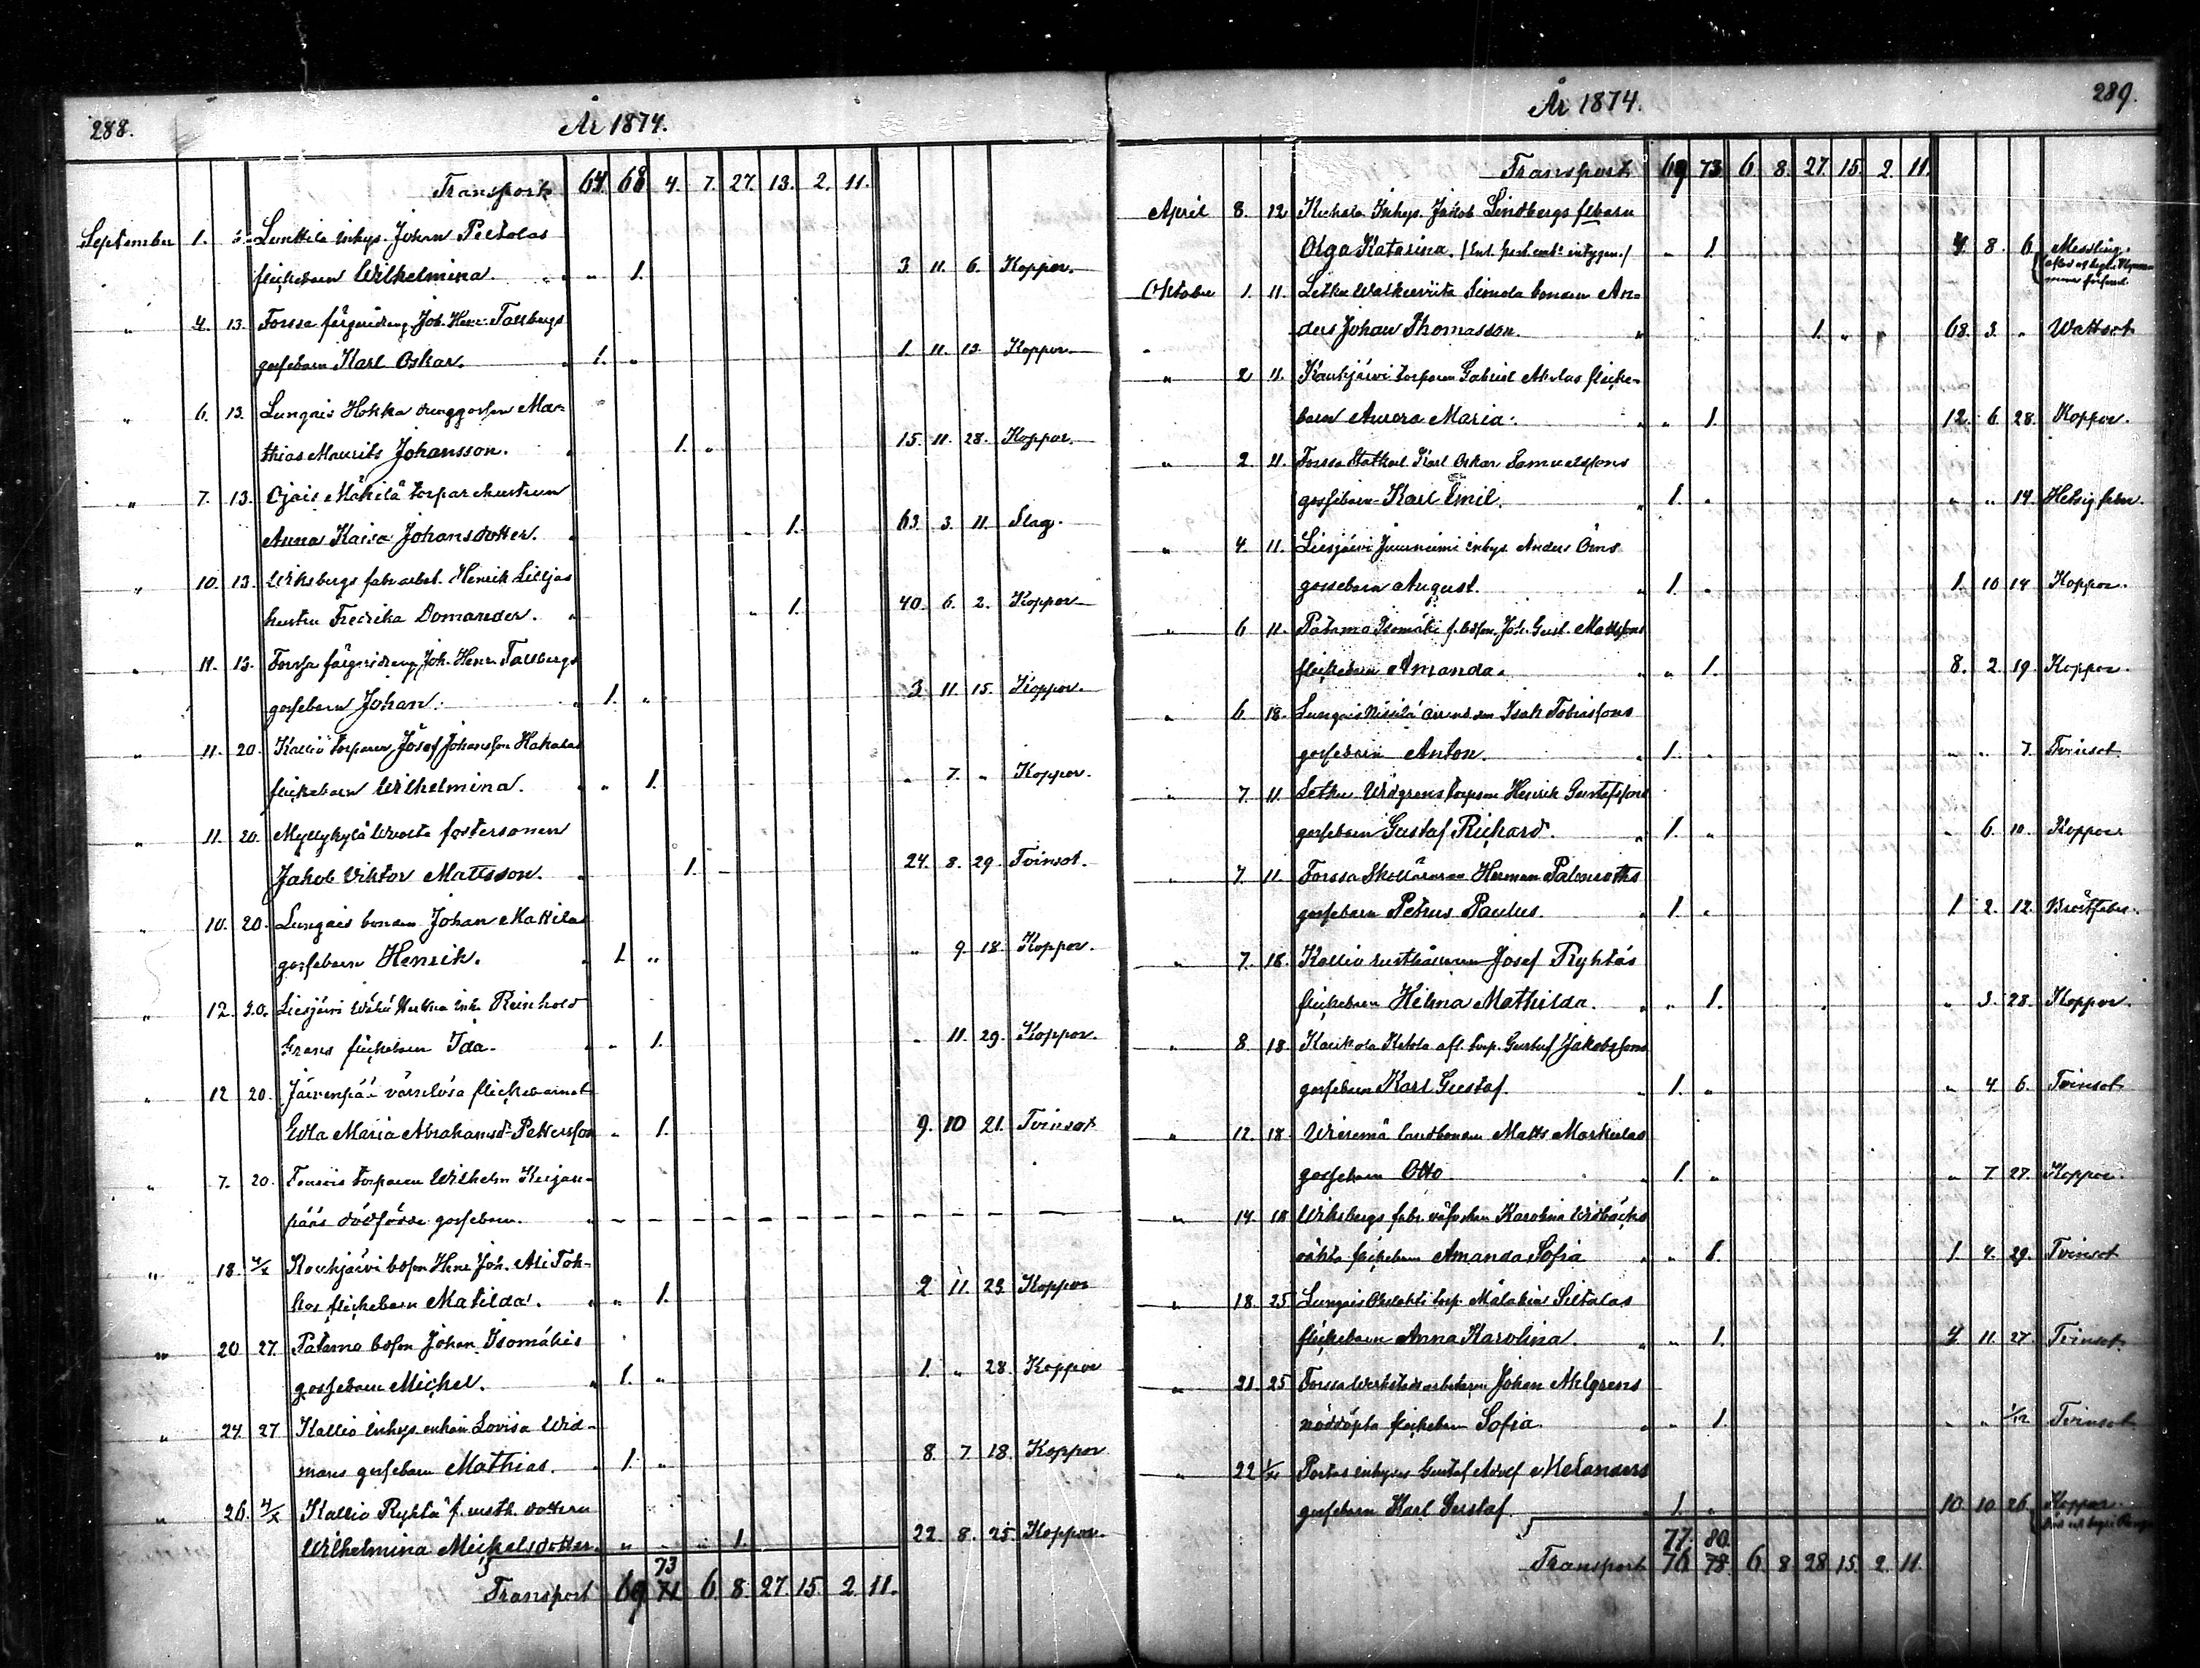 288.
År 1874.
Transport 64. 68 4. 7. 27. 13. 2. 11.
September 1. Lunttila inhys. Johan Peltolas
flickebarn Wilhelmina. " " 1. 3. 11. 6. Koppor.
" 4. 13. Forssa färgeridreng Joh. Henr. Tallbergs
gossebarn Karl Oskar. " 1. " 1. 11. 13. Koppor.
" 6. 13. Lungais Hokka drenggossen Mat-
thias Maurits Johansson. " 1. " 15. 11. 28. Koppor.
" 7. 13. Ojais Mäkilä torpare hustrun
Anna Kaisa Johansdotter. " " 1. 63. 3. 11. Slag.
" 10. 13. Wiksbergs fabr. arbet. Henrik Liljas
hustru Fredrika Domander. " " 1. 40. 6. 2. Koppor
" 11. 13. Forssa färgeridreng Joh. Henr. Tallbergs
gossebarn Johan. " 1. " 3 11. 15. Koppor.
" 11. 20. Kallio torparen Josef Johansson Hakalas
flickebarn Wilhelmina. " " 1. " 7. " Koppor.
" 11. 20. Myllykylä fostersonen
Jakob Viktor Mattsson. " 1. - 24. 8. 29. Tvinsot.
" 10. 20. Lungais bonden Johan Mattilas
gossebarn Henrik. " 1. " " 9. 18. Koppor.
" 12. 20. Liesjärvi inh. Reinhold
Grans flickebarn Ida. " " 1. " 11. 29. Koppor.
" 12 20. Järvenpää värnlösa flickebarnet
Edla Maria Abrahamsdr Pettersson " 1. 9. 10 21. Tvinsot
" 7. 20. torparen Wilhelm Kujan-
pääs dödfödde gossebarn. "
" 18. 4/X Koukjärvi bdson Henr. Joh. Ali Toh-
kas flickebarn Matilda. " " 1. 2 11. 23 Koppor
" 20 27. Patamo bdson Johan Isomäkis
gossebarn Michel. " 1. " 1. " 28. Koppor
" 24. 27 Kallio inhys enkan Lovisa Wid-
mans gossebarn Mathias. " 1. " 8. 7. 18. Koppor
" 26. 4/X Kallio Ryhtä f. rusth. dottern
Wilhelmina Michelsdotter. " " " 1. 22. 8. 25. Koppor.
73
Transport 69 71 6. 8. 27. 15. 2. 11.
289.
År 1874.
Transport 69 73 6. 8. 27. 15. 2. 11.
April 8. 12 Kuhala Inhys. Jakob Lindbergs flbarn
Olga Katarina. " 1. 4. 8. 6. Messling.
Oktober 1. 11. Letku bonden An-
ders Johan Thomasson. " 1. " " 68. 3. " Wattsot
" 2 11. Kaukjärvi torparen Gabriel flicke-
barn Aurora Maria. " " 1. 12. 6. 28. Koppor.
" 2. 11. Forssa Statkarl Karl Oskar Samuelssons
gossebarn Karl Emil. " 1. " " " 14. Hetsig feber.
" 4. 11. Liesjärvi inhys. Anders Öms
gossebarn August. " 1. " 1. 10 14 Koppor.
" 6 11. Patamo Isomäki f. bdson. Joh. Gust. Mattssons
flickebarn Amanda. " " 1. 8. 2. 19. Koppor.
" 6. 18. Lungais Isak Tobiassons
gossebarn Anton. " 1. " " " 7. Tvinsot
" 7. 11. Letku Widgrens torparen Henrik Gustafssons
gossebarn Gustaf Richard. " 1. " " 6. 10. Koppor.
" 7. 11. Forssa Skolläraren Herman Palmroths
gossebarn Petrus Paulus. " 1. " 1 2. 12. Bröstfeber.
" 7. 18. Kallio rusthållaren Josef Ryhtäs
flickebarn Hilma Mathilda. " " 1. " 3. 28. Koppor.
" 8. 18. Kaukola Ketola afl. torp. Gustaf Jakobssons
gossebarn Karl Gustaf. " 1. " " 4. 6. Tvinsot
" 12. 18. Wieremä landbonden Matts Markulas
gossebarn Otto " 1. " " 7. 27. Koppor.
" 14. 18 Wiksbergs fabr. Karolina Widbäcks
oäkta flickebarn Amanda Sofia " " 1. 1 4. 29. Tvinsot
" 18. 25 Lungais torp. Malakias Siltalas
flickebarn Anna Karolina. " " 1. 4 11. 27. Tvinsot.
" 21. 25 Forssa Werkstadsarbetaren Johan Melgrens
nöddöpta flickebarn Sofia " " 1. " " 1/12 Tvinsot
" 22 Portas inhyses Gustaf Adolf Melanders
gossebarn Karl Gustaf. " 1. " 10. 10. 26. Koppor.
77. 80.
Transport 76 78. 6. 8. 28 15. 2. 11.